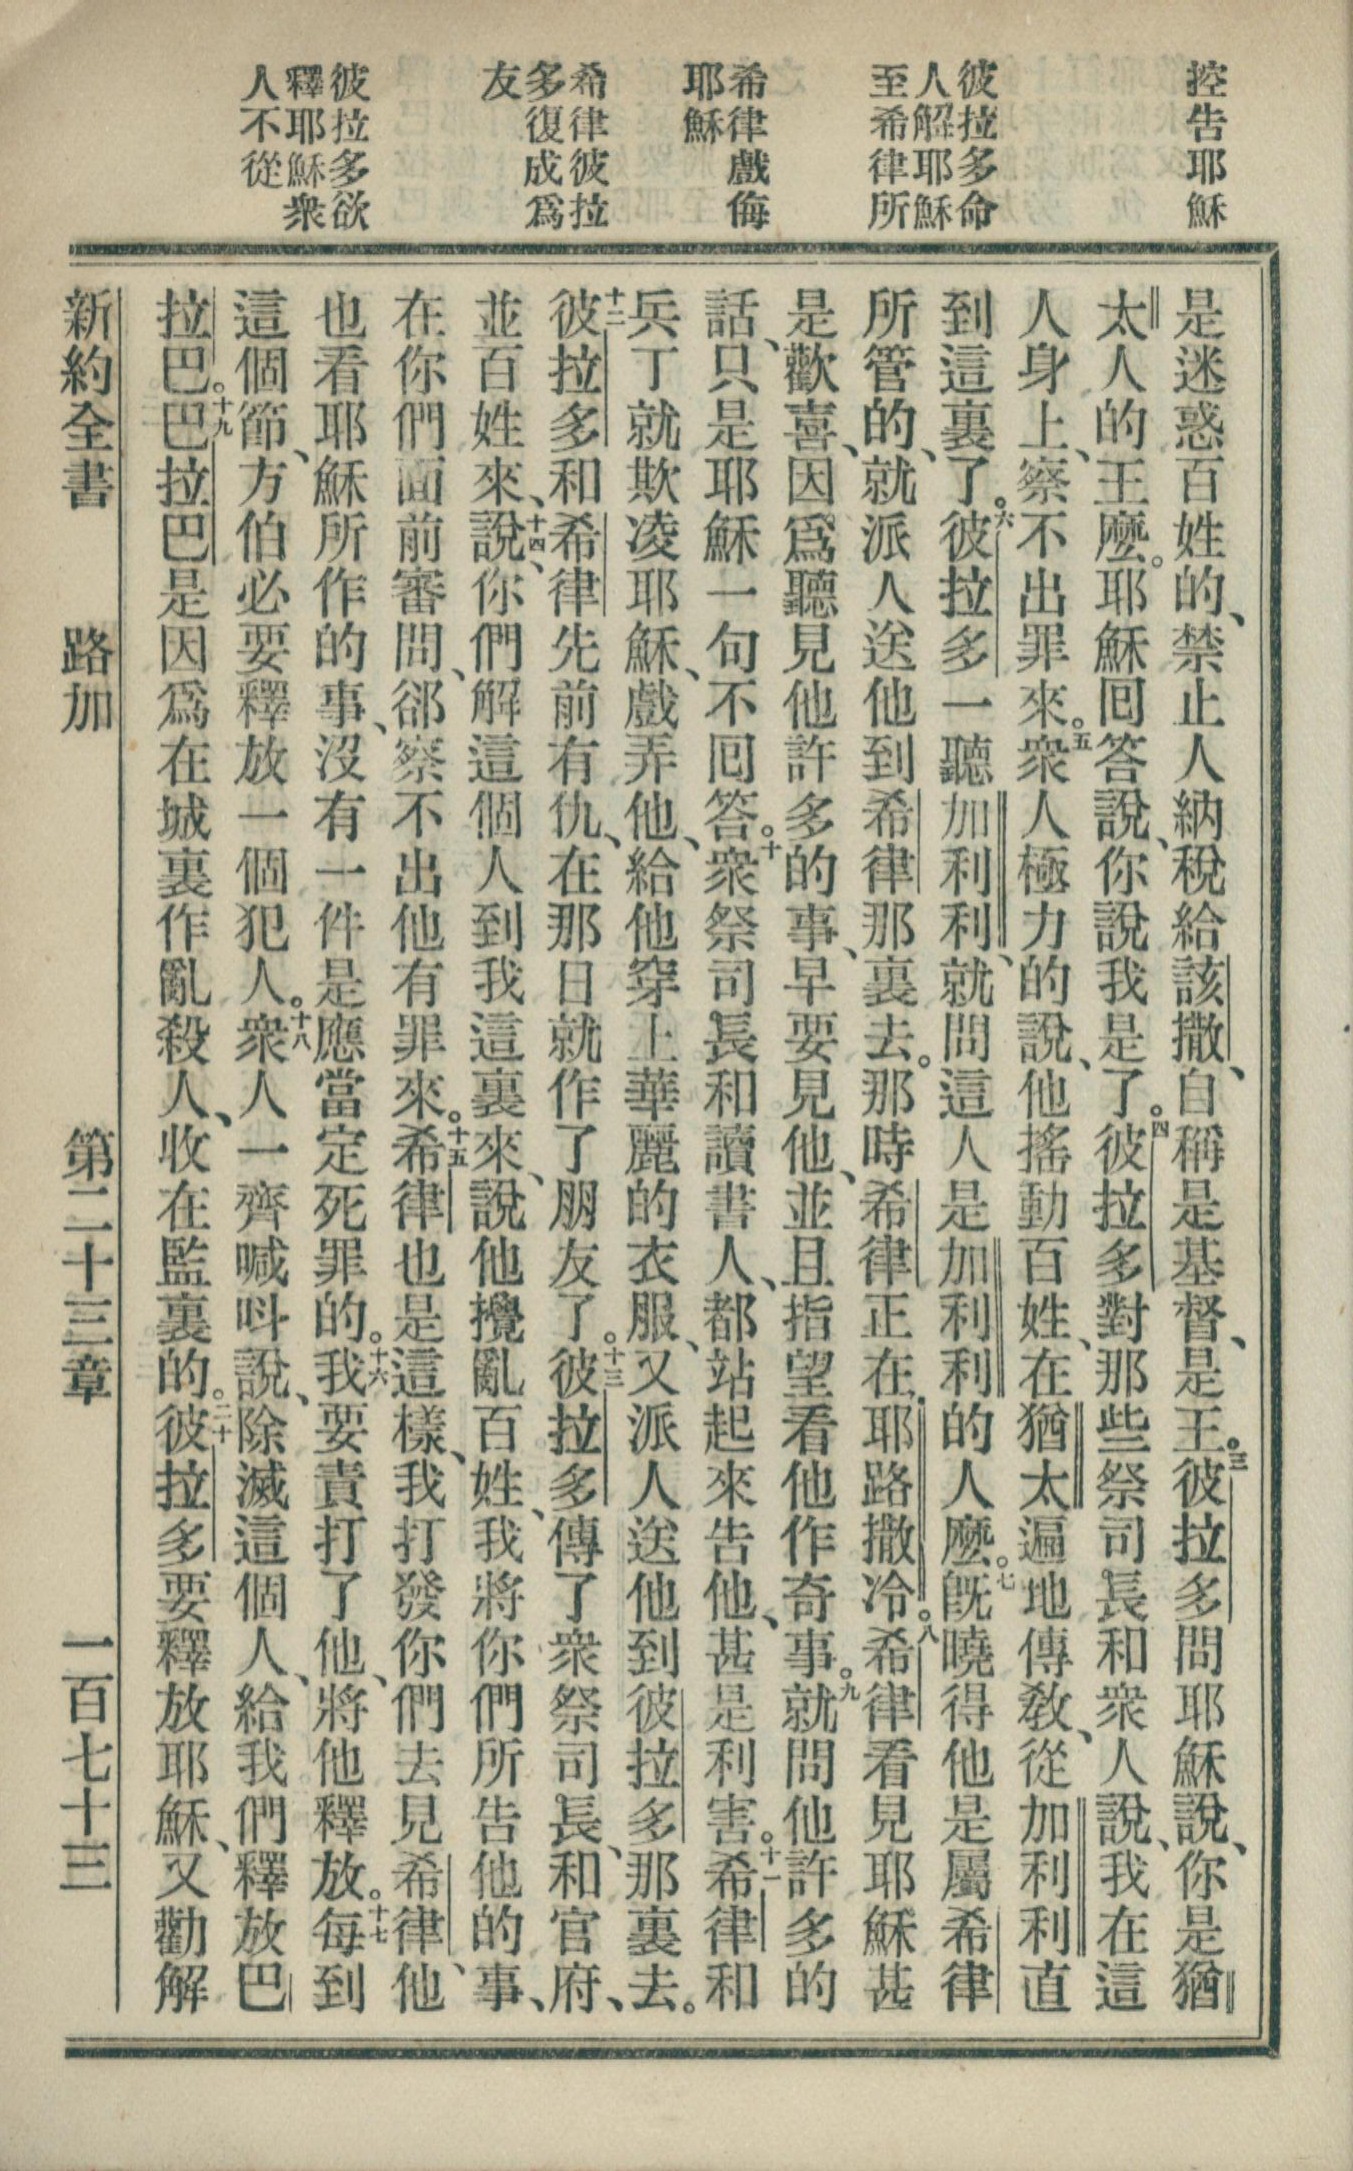 控告耶穌
彼拉多命
人解耶穌
至希律所
希律戲侮
耶穌
希律彼拉
多復成爲
友
彼拉多欲
釋耶穌衆
人不從
是迷惑百姓的、禁止人納稅給該撒、自稱是基督、是王。三彼拉多問耶穌說、你是猶
太人的王麽。耶穌回答說、你說我是了。四彼拉多對那些祭司長和衆人說、我在這
人身上、察不出罪來。五衆人極力的說、他搖動百姓、在猶太遍地傳教、從加利利直
到這裏了。六彼拉多一聽加利利、就問這人是加利利的人麽。七既曉得他是屬希律
所管的、就派人送他到希律那裏去。那時希律正在耶路撒冷。八希律看見耶穌甚
是歡喜、因爲聽見他許多的事、早要見他、並且指望看他作奇事。九就問他許多的
話、只是耶穌一句不回答。十衆祭司長和讀書人、都站起來告他、甚是利害。十一希律和
兵丁就欺凌耶穌、戲弄他、給他穿上華麗的衣服、又派人送他到彼拉多那裏去。
十二彼拉多和希律先前有仇、在那日就作了朋友了。十三彼拉多傳了衆祭司長、和官府、
並百姓來、十四說、你們解這個人到我這裏來、說他攪亂百姓、我將你們所告他的事、
在你們面前審問、郤察不出他有罪來。十五希律也是這樣、我打發你們去見希律、他
也看耶穌所作的事、沒有一件是應當定死罪的。十六我要責打了他、將他釋放。十七每到
這個節、方伯必要釋放一個犯人。十八衆人一齊喊呌說、除滅這個人、給我們釋放巴
拉巴。十九巴拉巴是因爲在城裏作亂殺人、收在監裏的。二十彼拉多要釋放耶穌、又勸解
新約全書　路加　第二十三章　一百七十三